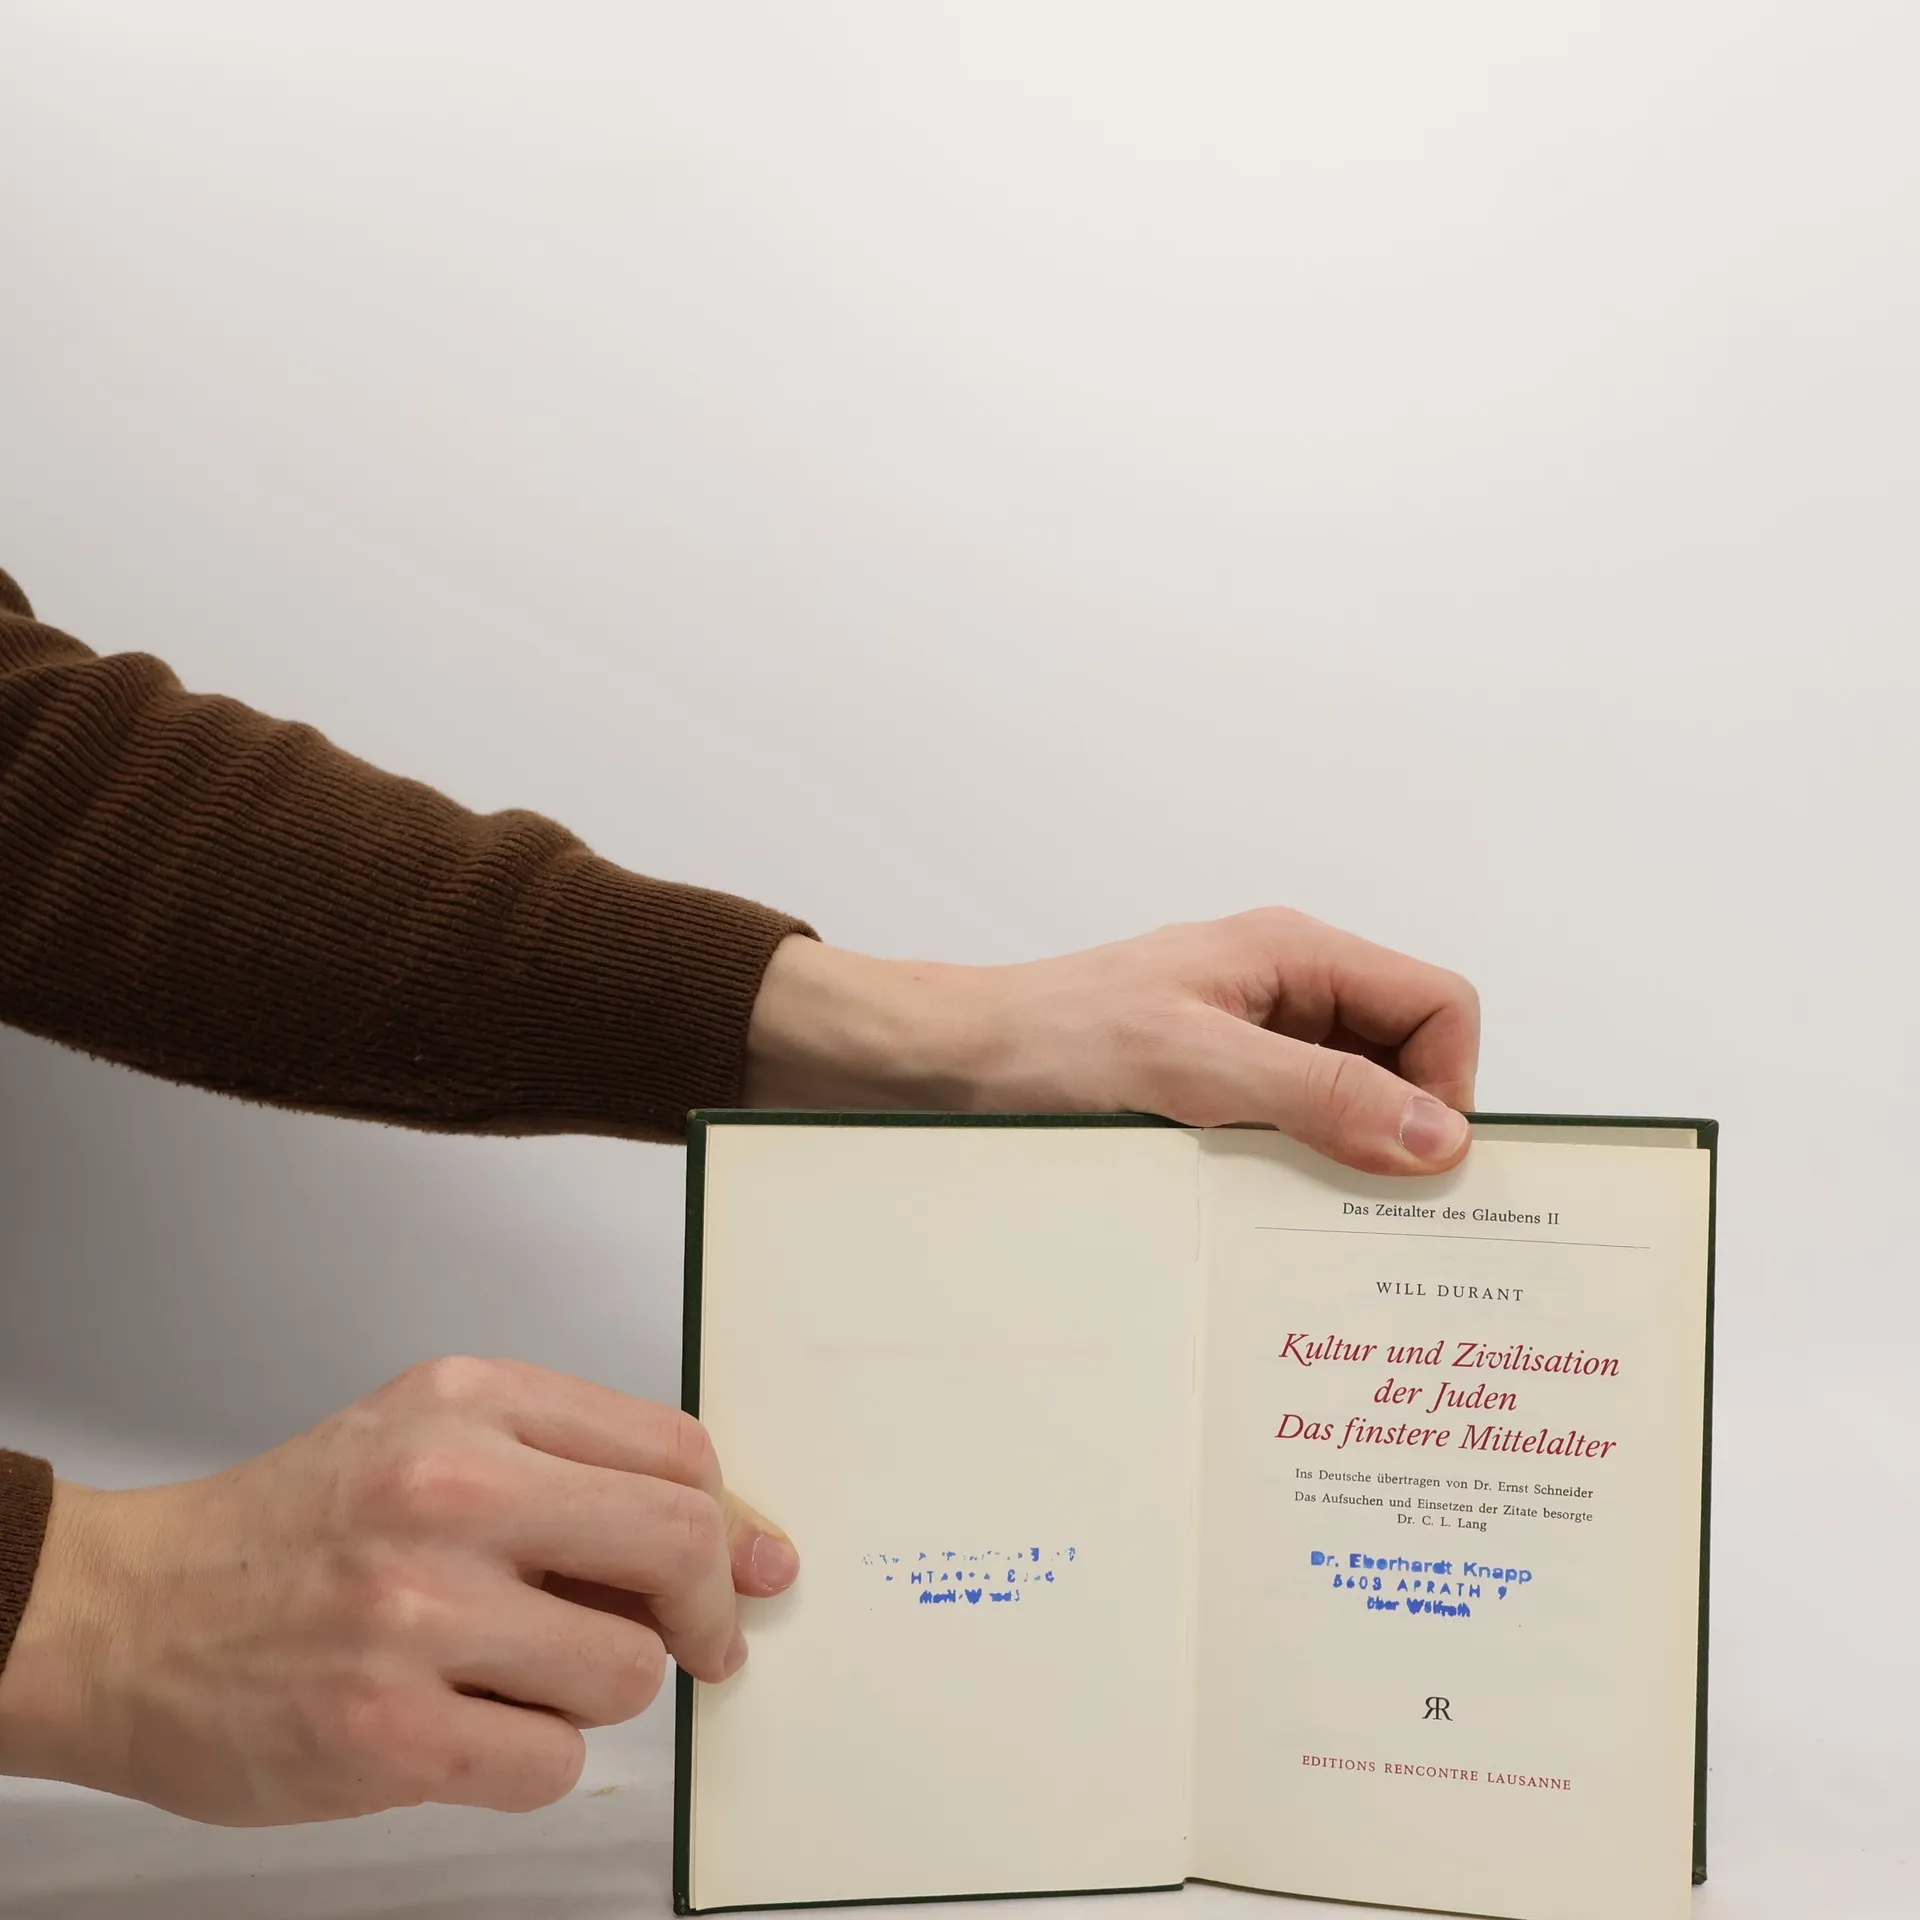 Das Zeitalter des Glaubens II
WILL DURANT
Kultur und Zivilisation
der Juden
Das finstere Mittelalter
Ins Deutsche übertragen von Dr. Ernst Schneider
Das Aufsuchen und Einsetzen der Zitate besorgte
Dr. C. L. Lang
Dr. Eberhardt Knapp
5603 APRATH 9
über Wülfrath
EDITIONS RENCONTRE LAUSANNE